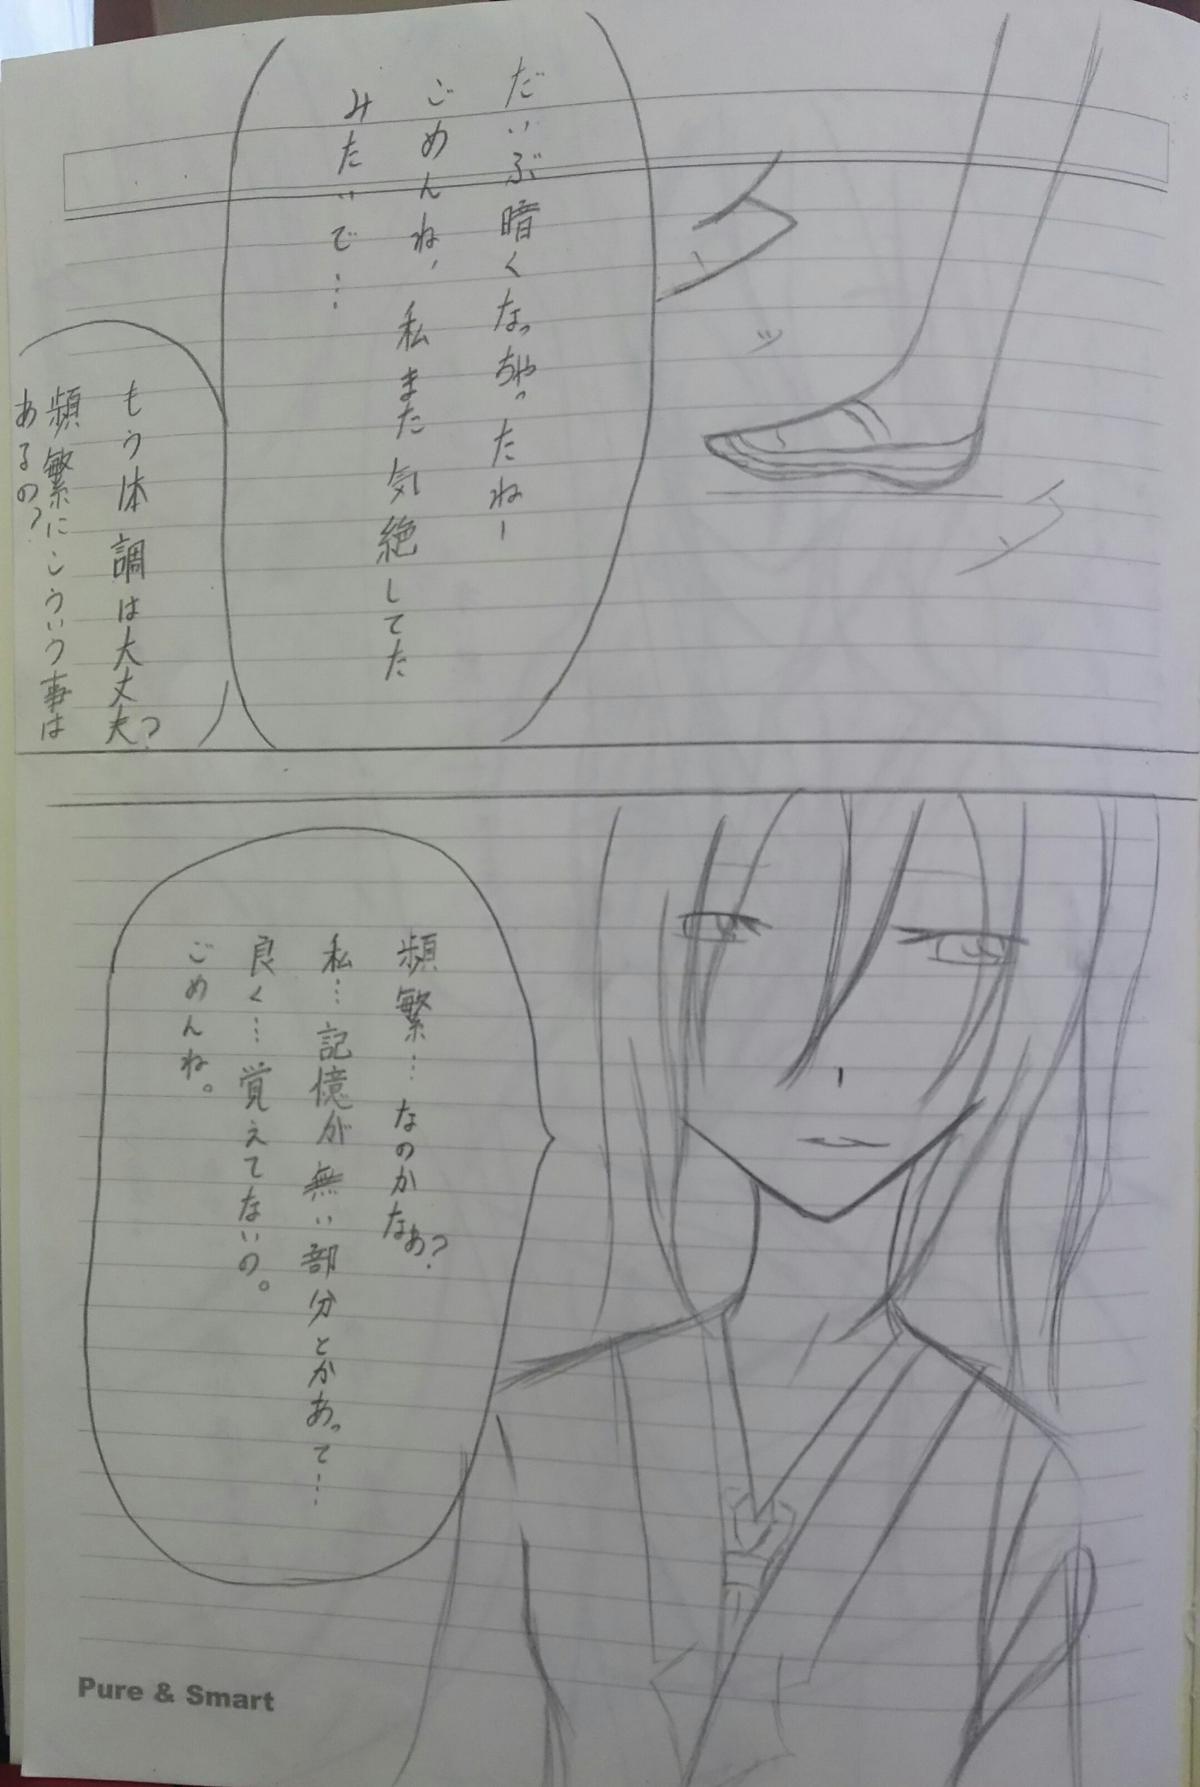 だいぶ暗くなっちゃったねー
ごめんね、私また気絶してた
みたいで…
もう体調は大丈夫?
頻繁にこういう事は
あるの?
頻繁…なのかなぁ?
私…記憶が無い部分とかあって…
良く…覚えてないの。
ごめんね。
Pure & Smart